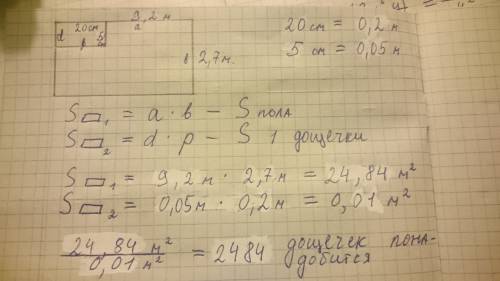 9,2 м
20см
a
d
5
см
p
в 2,7м.
20 см = 0,2 м
5 см = 0,05 м
S▭₁ = a · в – S пола
S▭₂ = d · p – S 1 дощечки
S▭₁ = 9,2м · 2,7м = 24,84 м²
S▭₂ = 0,05м · 0,2м = 0,01 м²
24,84 м² / 0,01 м² = 2484 дощечек пона-
добится